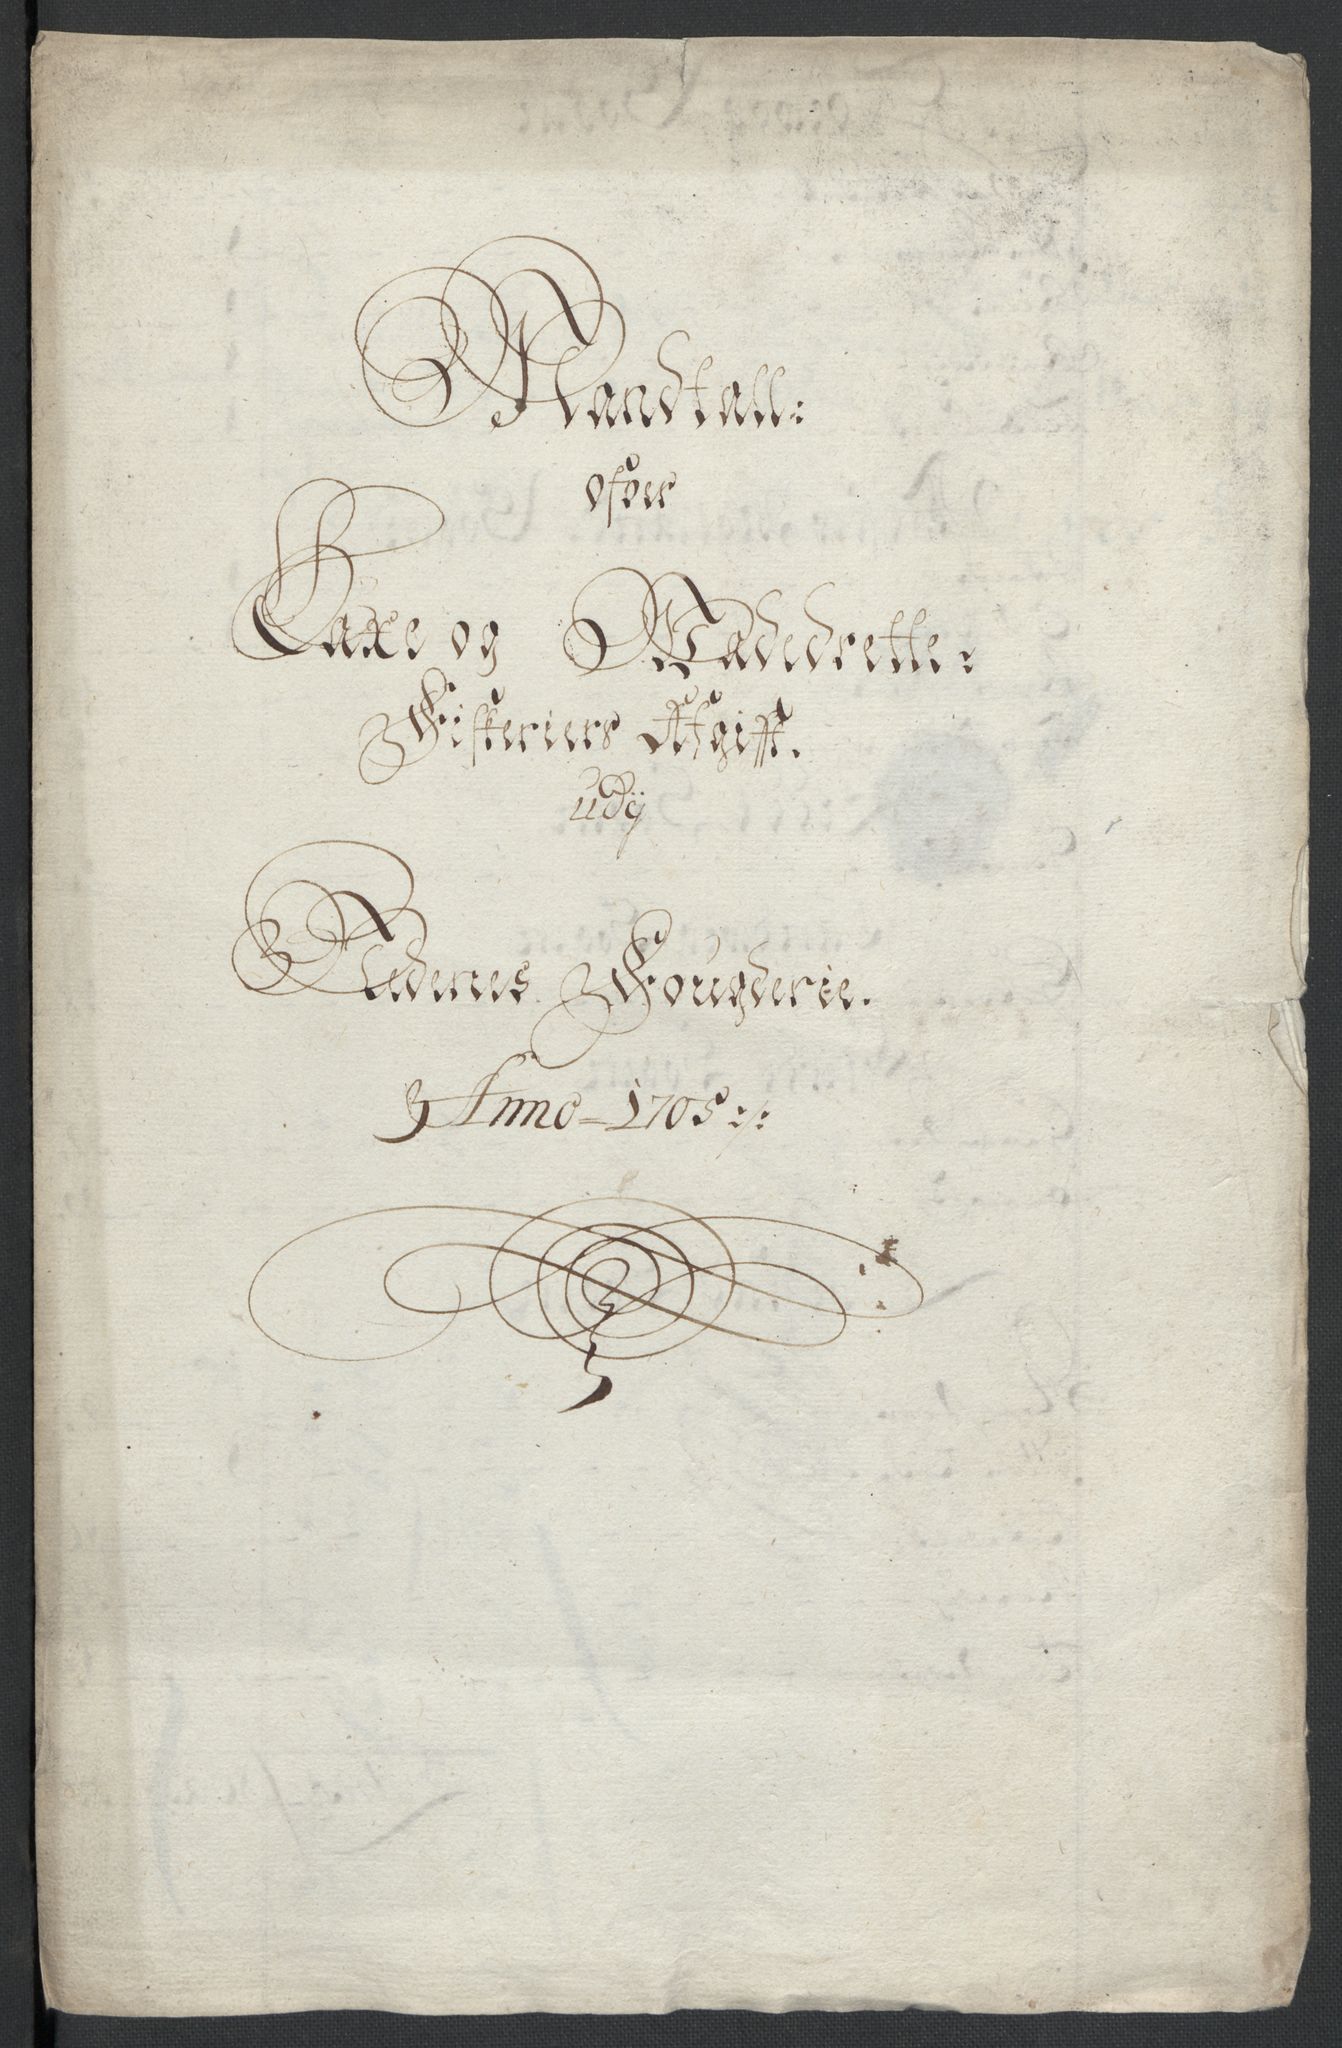 Mandtall:
ofver
Laxe og Wadedrette:
Fiskeriers Afgifft.
udj
Nedenes Fougderie.
Anno 1705:/: